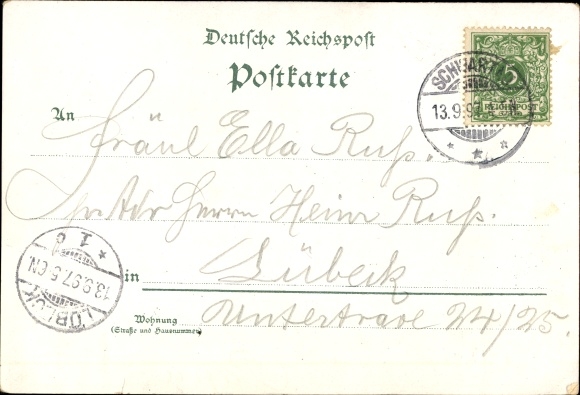 Deutsche Reichspost
Postkarte
SCHWART
13.9.97
5
REICHSPOST
An
Fräul Ella Ruß.
pr Adr Herrn Heinr Ruß.
in
Lübeck
Wohnung
(Straße und Hausnummer)
Untertrave 24/25.
LÜBECK
13.9.97.5-6N.
* 1 c